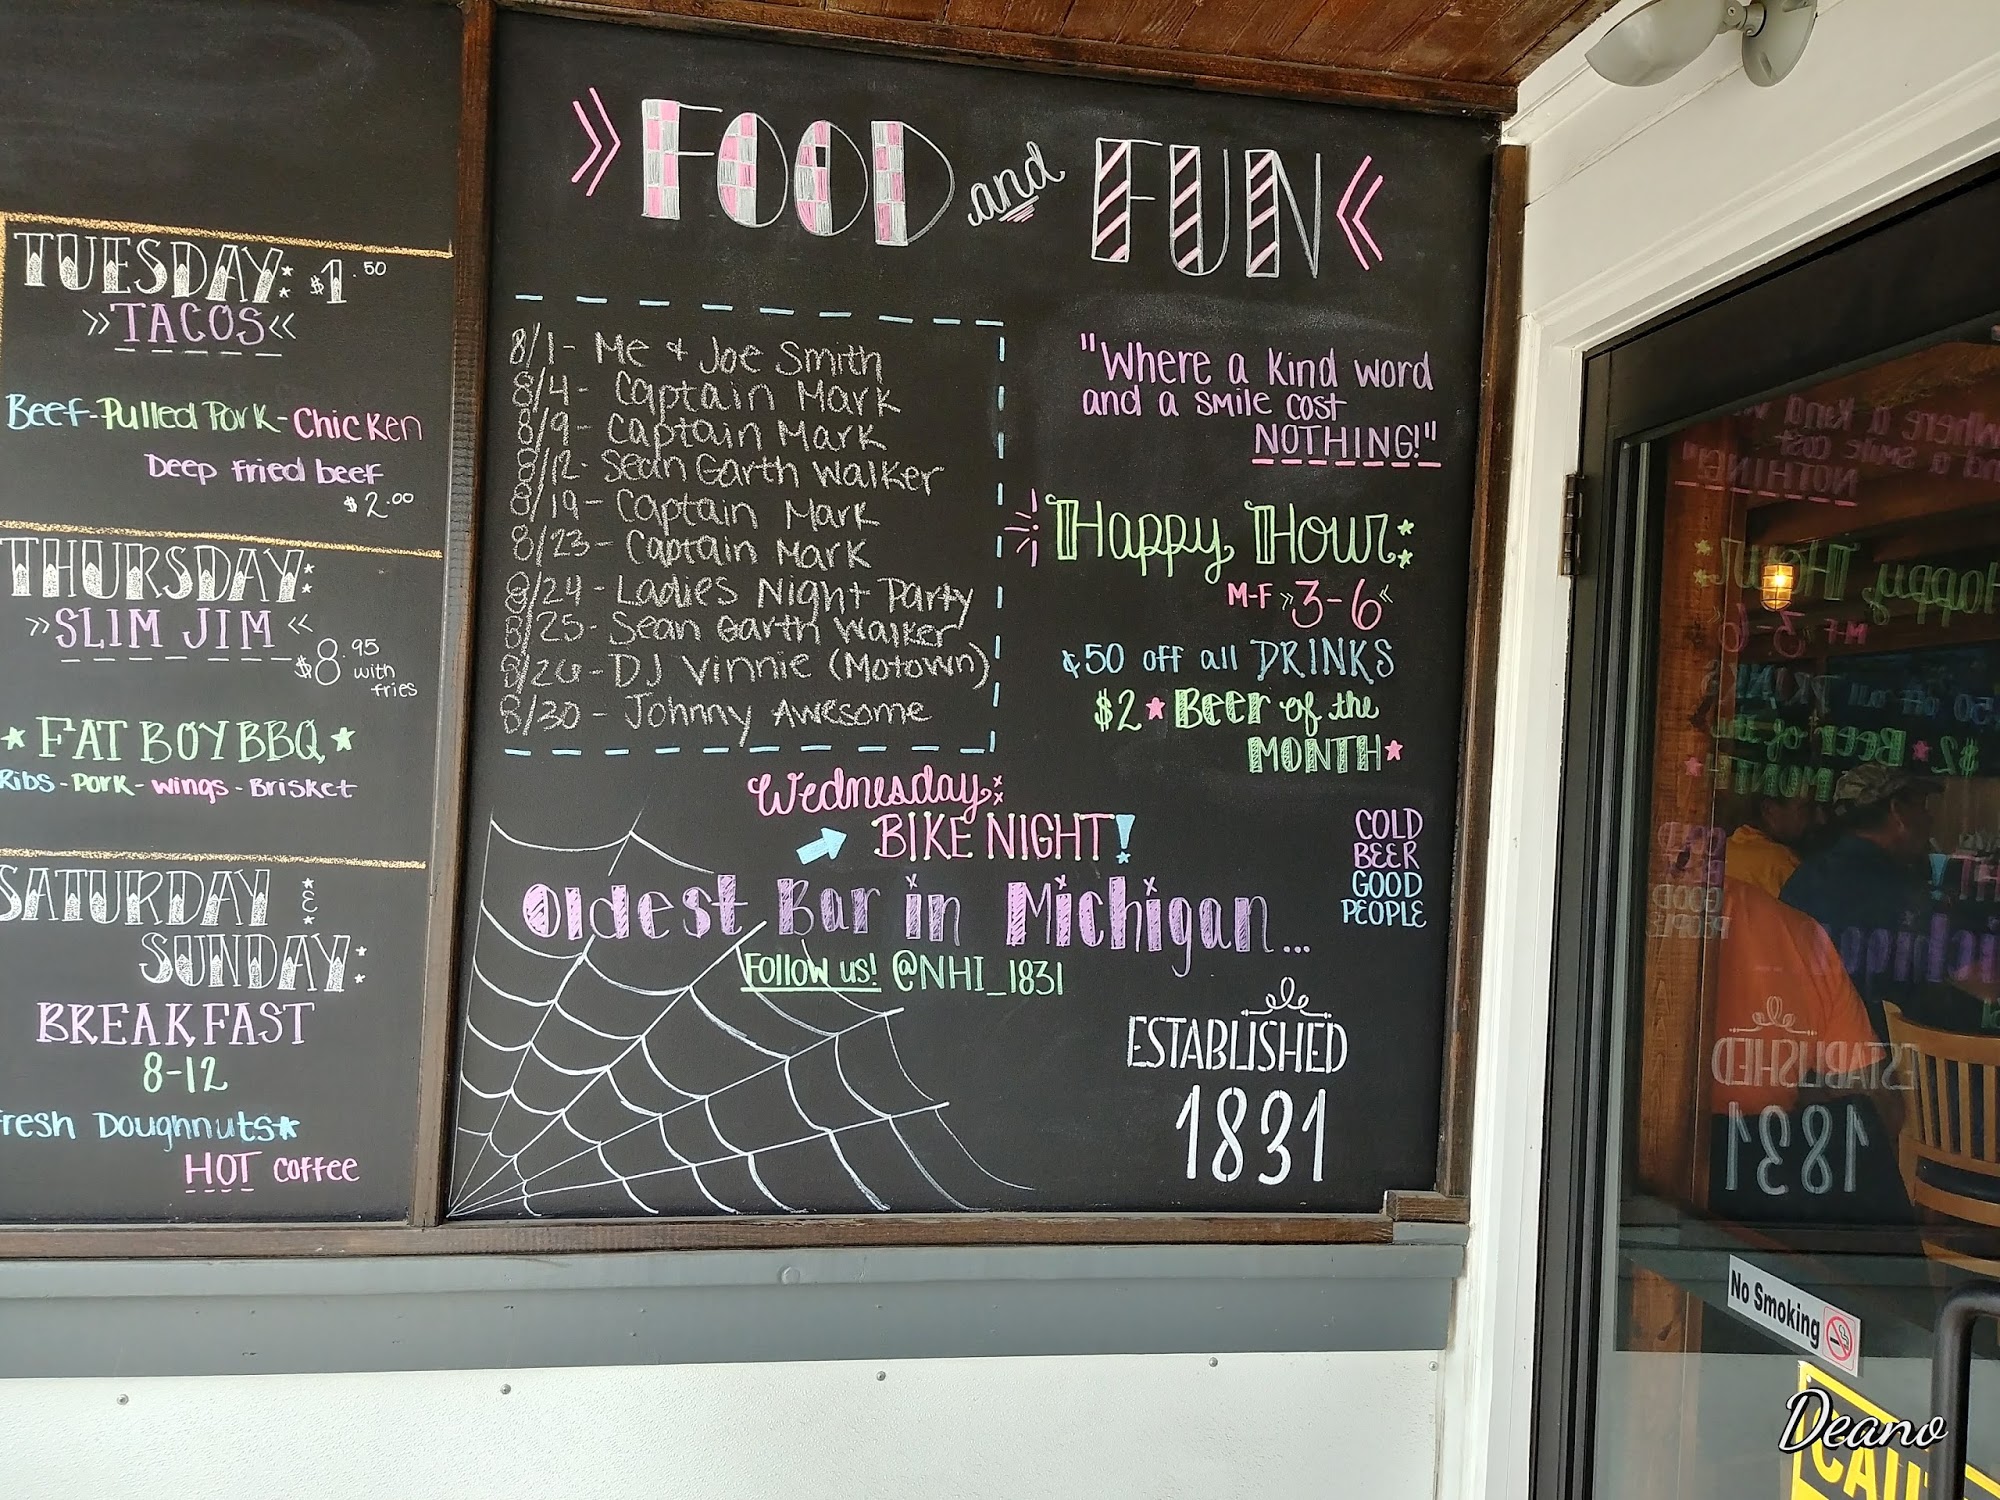 TUESDAY: $1.50
»TACOS«
Beef-Pulled Pork-Chicken
Deep fried beef
$2.00
THURSDAY:
»SLIM JIM«
$8.95
with
fries
★ FAT BOY BBQ ★
Ribs - Pork - Wings - Brisket
SATURDAY &
SUNDAY:
BREAKFAST
8-12
Fresh Doughnuts★
HOT coffee
»FOOD and FUN«
8/1- Me + Joe Smith
8/4- Captain Mark
8/9- Captain Mark
8/12- Sean Garth Walker
8/19- Captain Mark
8/23- Captain Mark
8/24- Ladies Night Party
8/25- Sean Garth Walker
8/26- DJ Vinnie (Motown)
8/30- Johnny Awesome
"Where a kind word
and a smile cost
NOTHING!"
Happy Hour:
M-F »3-6«
¢50 off all DRINKS
$2 ★ Beer of the
MONTH★
Wednesday:
BIKE NIGHT!
Oldest Bar in Michigan...
Follow us! @NHI_1831
COLD
BEER
GOOD
PEOPLE
ESTABLISHED
1831
No Smoking
Deano